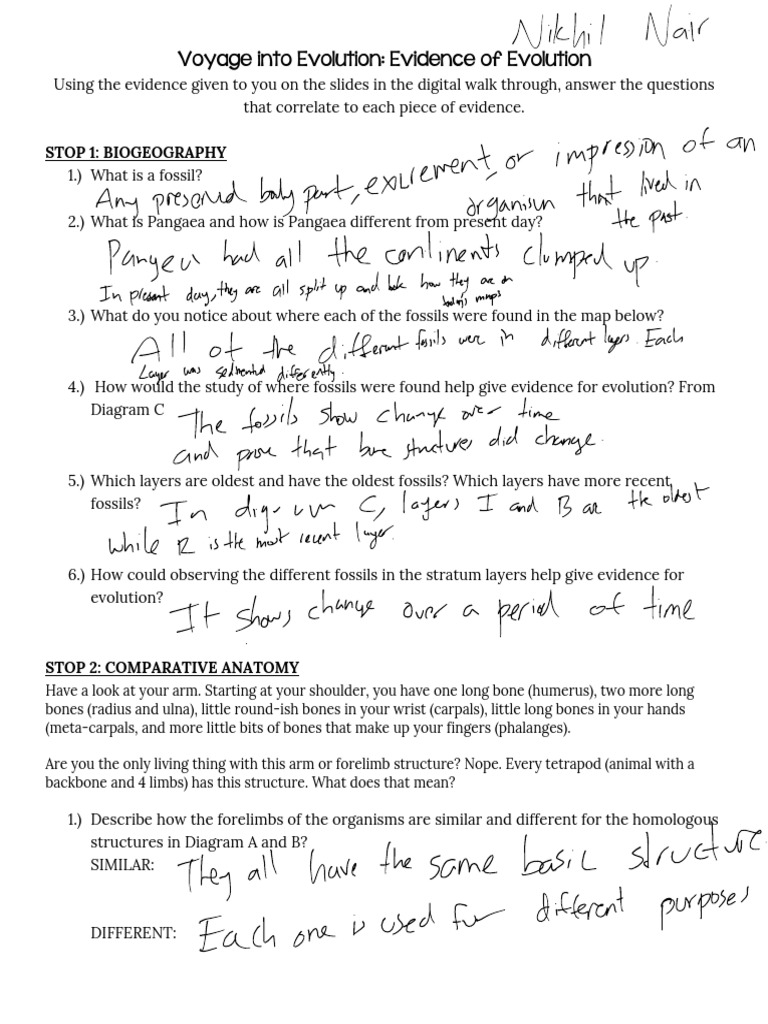 Nikhil Nair
Voyage into Evolution: Evidence of Evolution
Using the evidence given to you on the slides in the digital walk through, answer the questions
that correlate to each piece of evidence.
STOP 1: BIOGEOGRAPHY
1.) What is a fossil?
Any preserved body part, excrement, or impression of an
organism that lived in
the past.
2.) What is Pangaea and how is Pangaea different from present day?
Pangea had all the continents clumped up.
In present day, they are all split up and look how they are on
today's maps
3.) What do you notice about where each of the fossils were found in the map below?
All of the different fossils were in different layers. Each
Layer was sedmented differently.
4.) How would the study of where fossils were found help give evidence for evolution? From
Diagram C
The fossils show change over time
and prove that bone structures did change.
5.) Which layers are oldest and have the oldest fossils? Which layers have more recent
fossils?
In diagram C, layers I and B are the oldest
while R is the most recent layer.
6.) How could observing the different fossils in the stratum layers help give evidence for
evolution?
It shows change over a period of time
STOP 2: COMPARATIVE ANATOMY
Have a look at your arm. Starting at your shoulder, you have one long bone (humerus), two more long
bones (radius and ulna), little round-ish bones in your wrist (carpals), little long bones in your hands
(meta-carpals, and more little bits of bones that make up your fingers (phalanges).
Are you the only living thing with this arm or forelimb structure? Nope. Every tetrapod (animal with a
backbone and 4 limbs) has this structure. What does that mean?
1.) Describe how the forelimbs of the organisms are similar and different for the homologous
structures in Diagram A and B?
SIMILAR: They all have the same basic structure.
DIFFERENT: Each one is used for different purposes